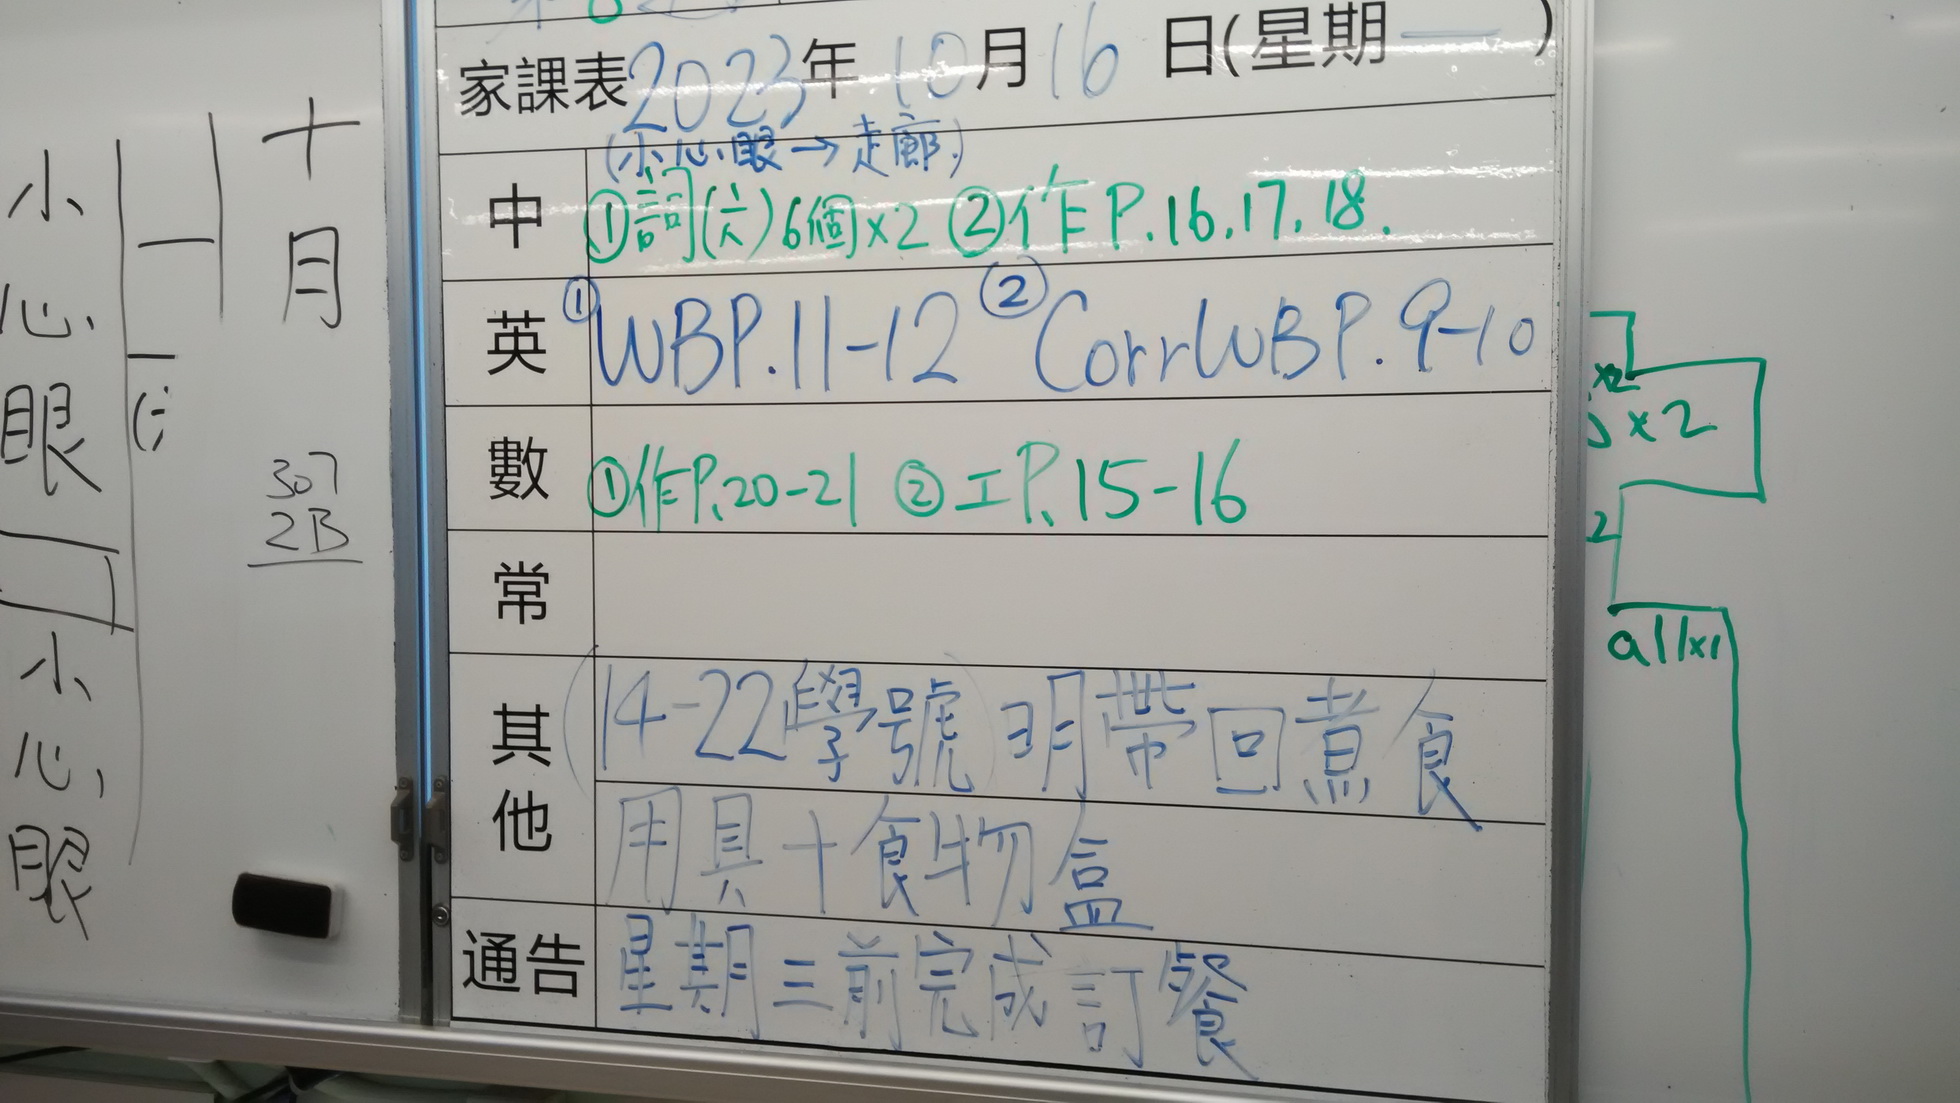 家課表2023年10月16日(星期一)
(小心眼→走廊)
中 ①詞(六)6個x2 ②作P.16.17.18.
英 ①WBP.11-12 ②CorrWBP.9-10
數 ①作P.20-21 ②工P.15-16
常
其他 (14-22學號)明帶回煮食
用具+食物盒
通告 星期三前完成訂餐
十月
一
307
2B
小心眼
小心眼
x2
x2
2
allx1